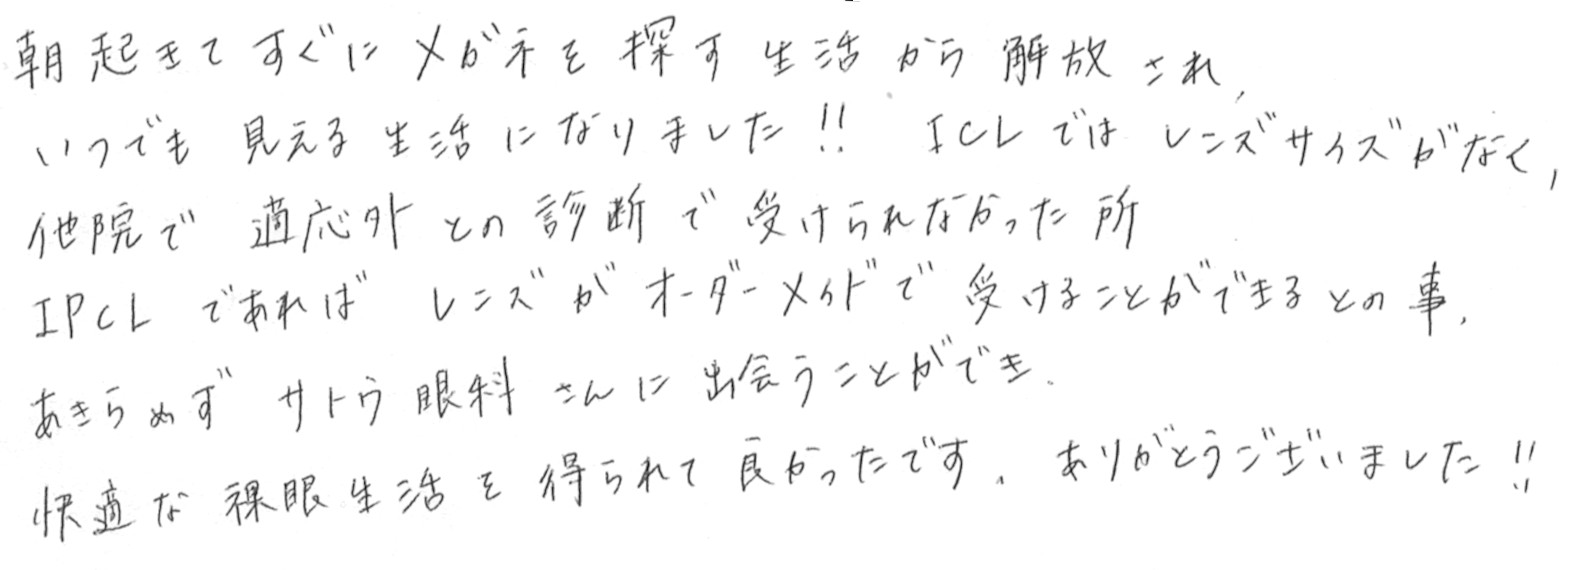 朝起きてすぐにメガネを探す生活から解放され、
いつでも見える生活になりました!! ICLではレンズサイズがなく、
他院で適応外との診断で受けられなかった所
IPCLであればレンズがオーダーメイドで受けることができるとの事、
あきらめずサトウ眼科さんに出会うことができ、
快適な裸眼生活を得られて良かったです。ありがとうございました!!